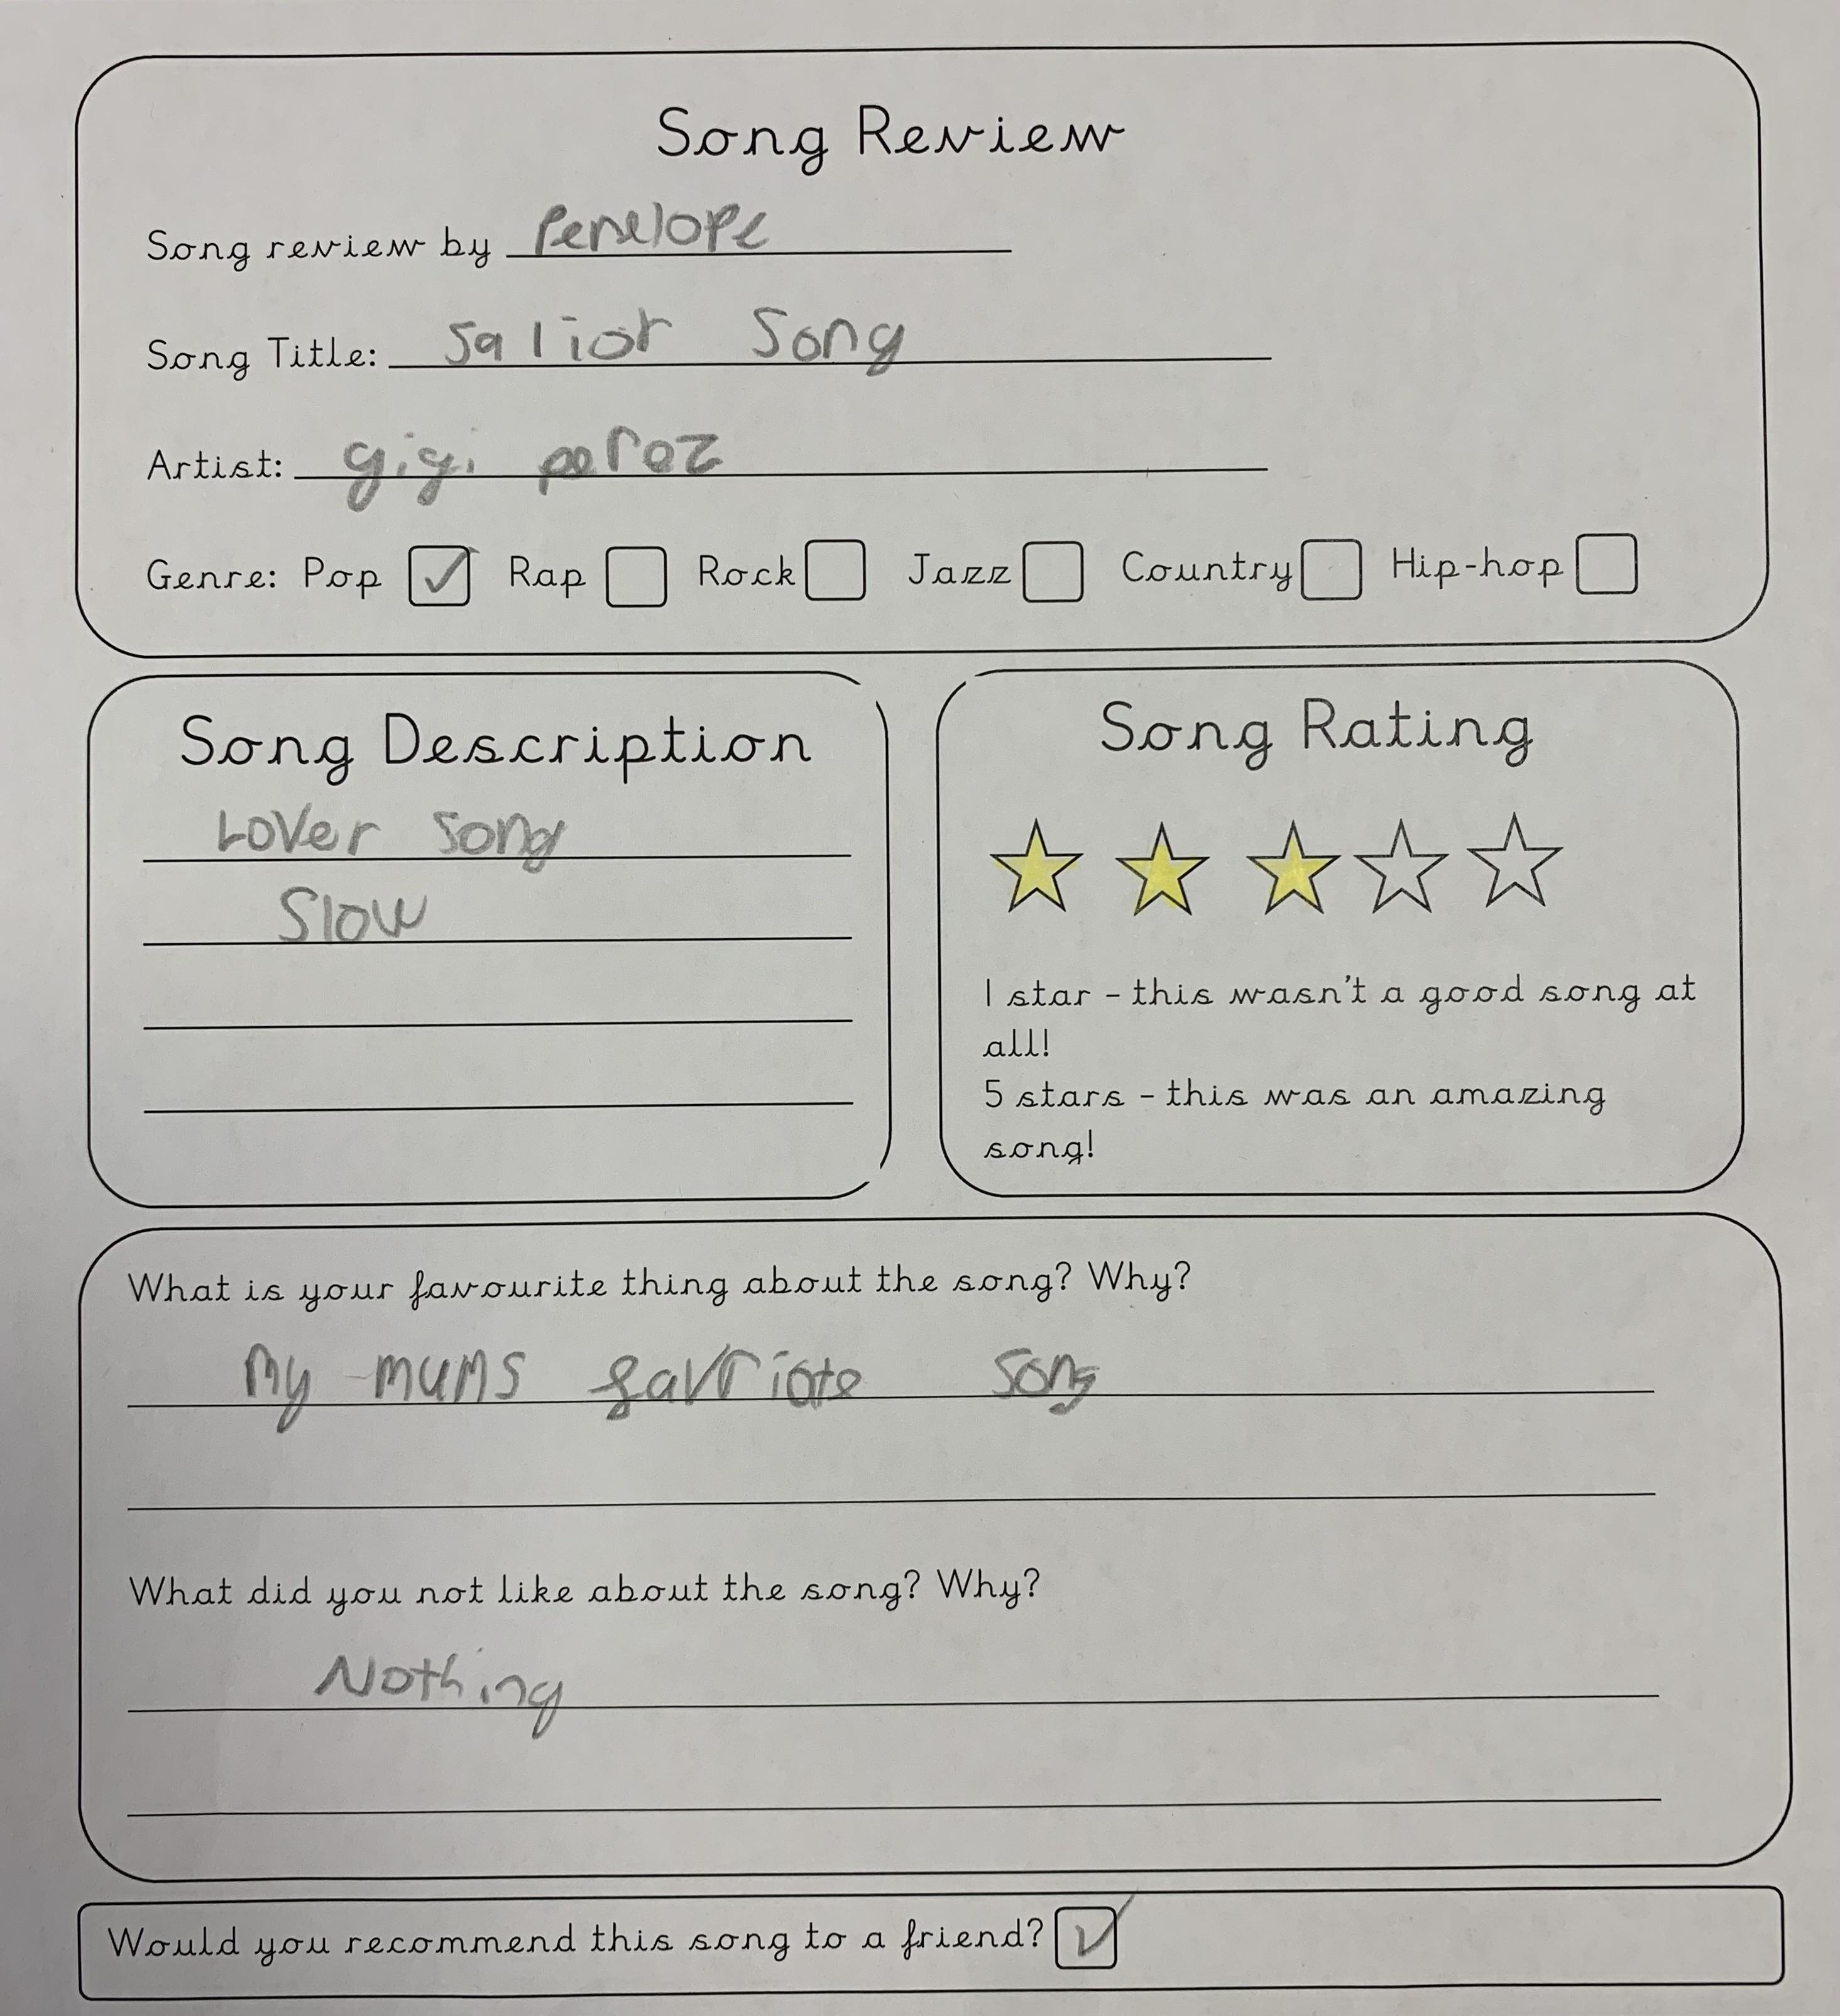 Song Review
Song review by Penelope
Song Title: Salior Song
Artist: gigi peroz
Genre: Pop ✓ Rap Rock Jazz Country Hip-hop
Song Description
Lover song
Slow
Song Rating
1 star - this wasn't a good song at
all!
5 stars - this was an amazing
song!
What is your favourite thing about the song? Why?
My mums favriote song
What did you not like about the song? Why?
Nothing
Would you recommend this song to a friend? ✓